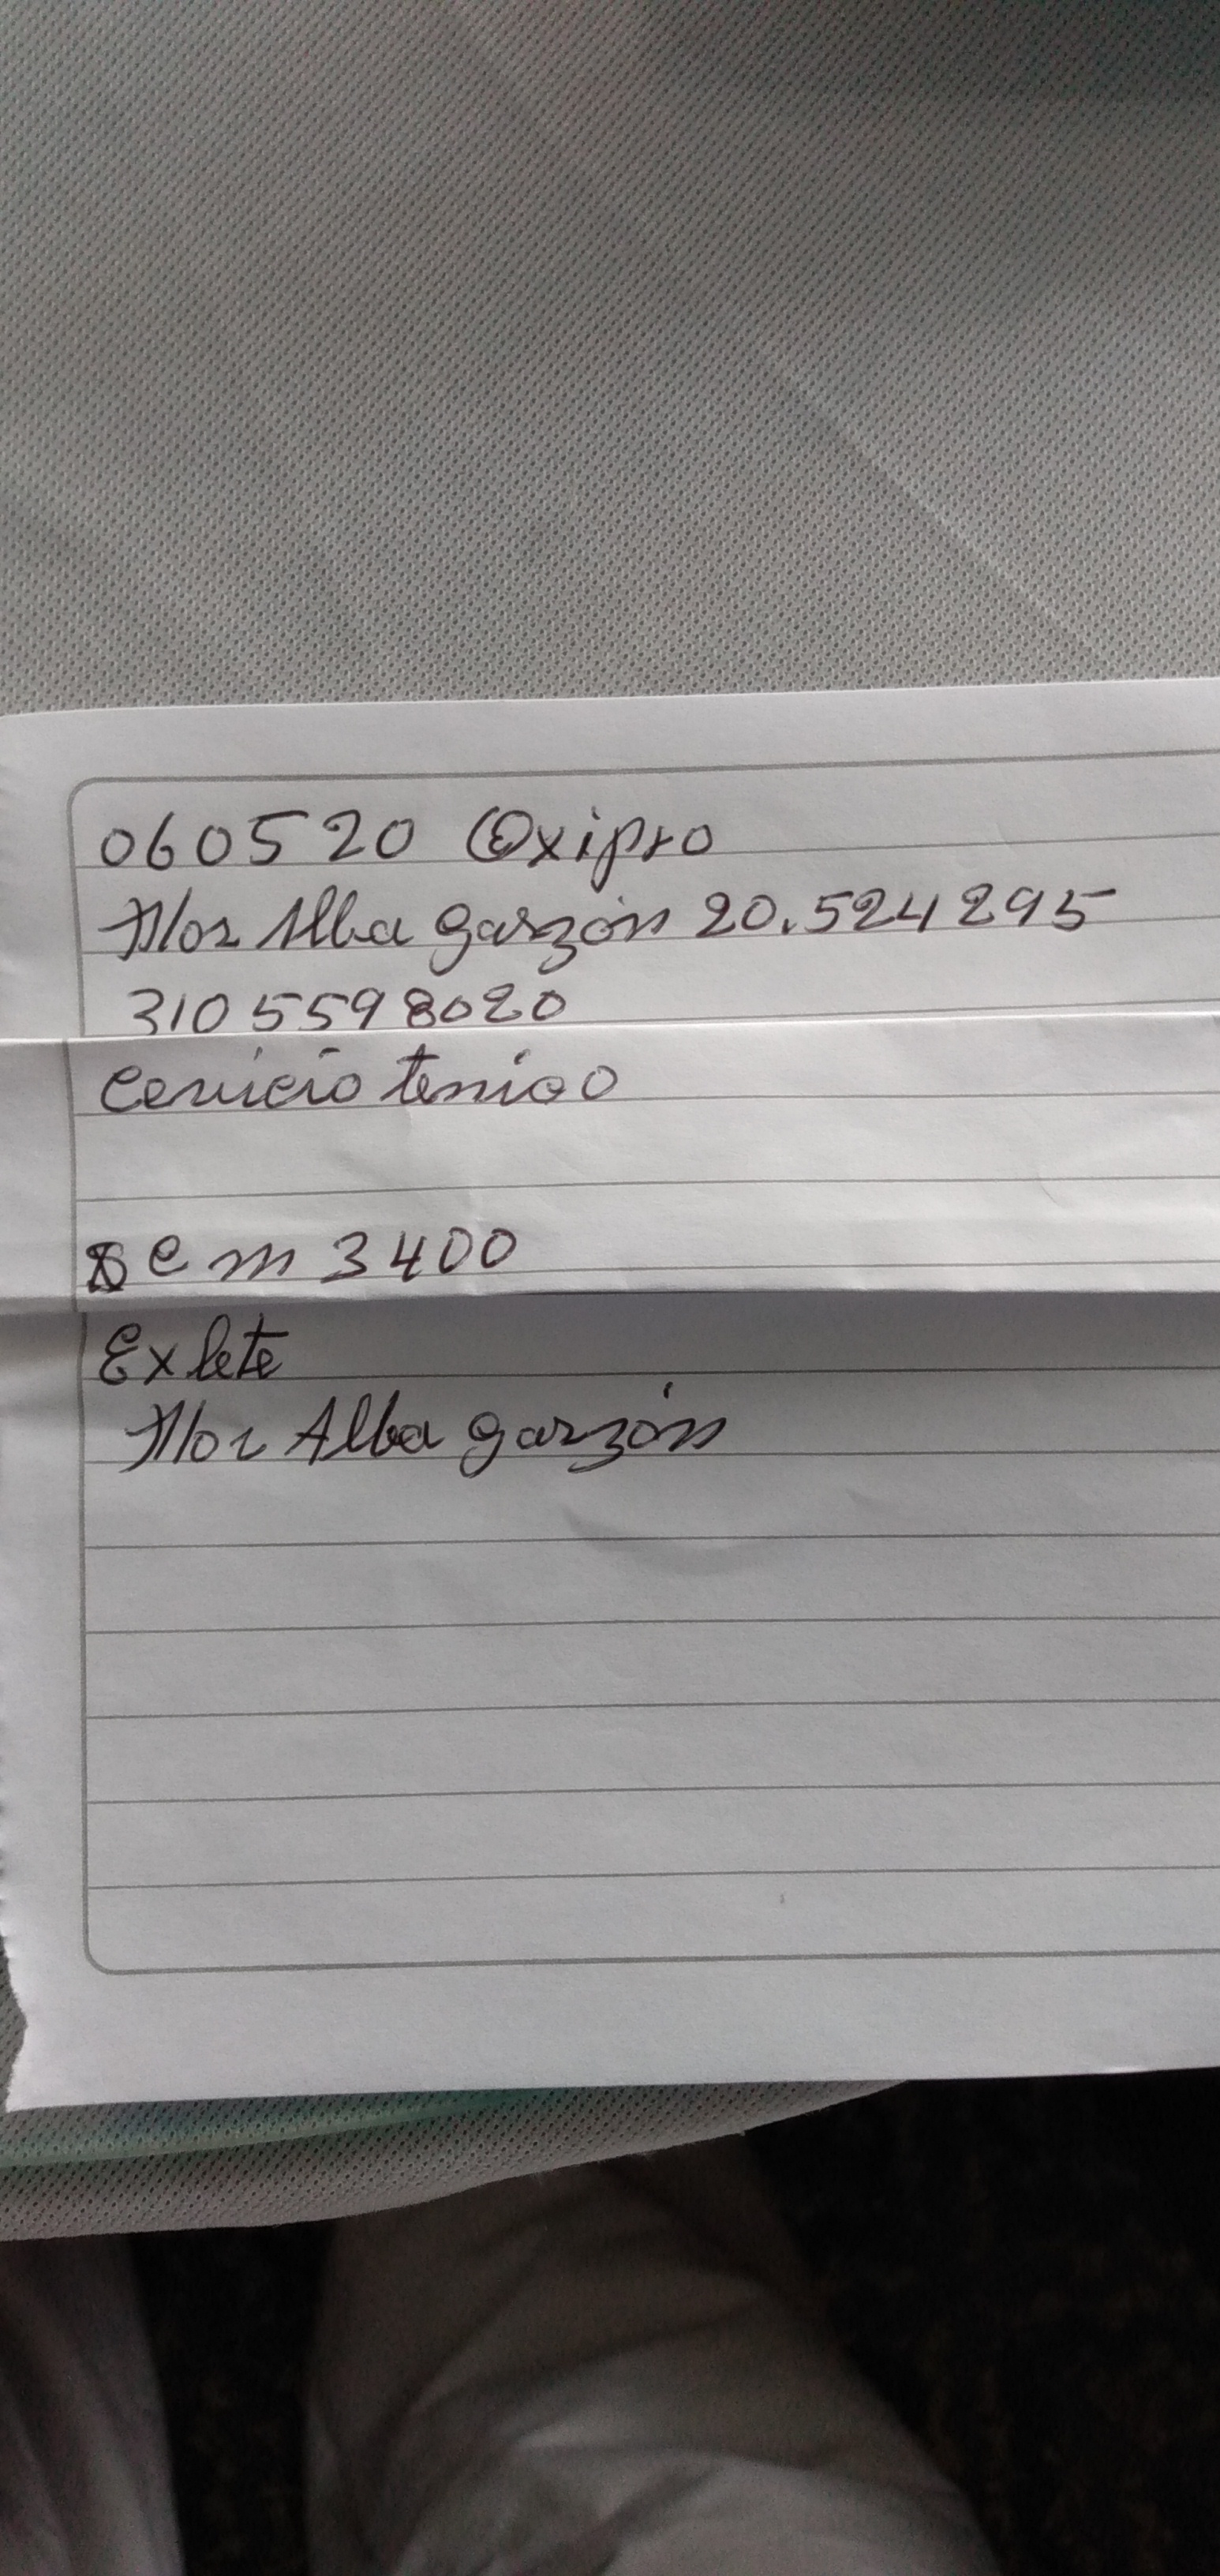 060520 Oxipro
Flor Alba garzón 20.524295
3105598020
Cervicio tenico
S e m 3400
Exlete
Flor Alba garzón